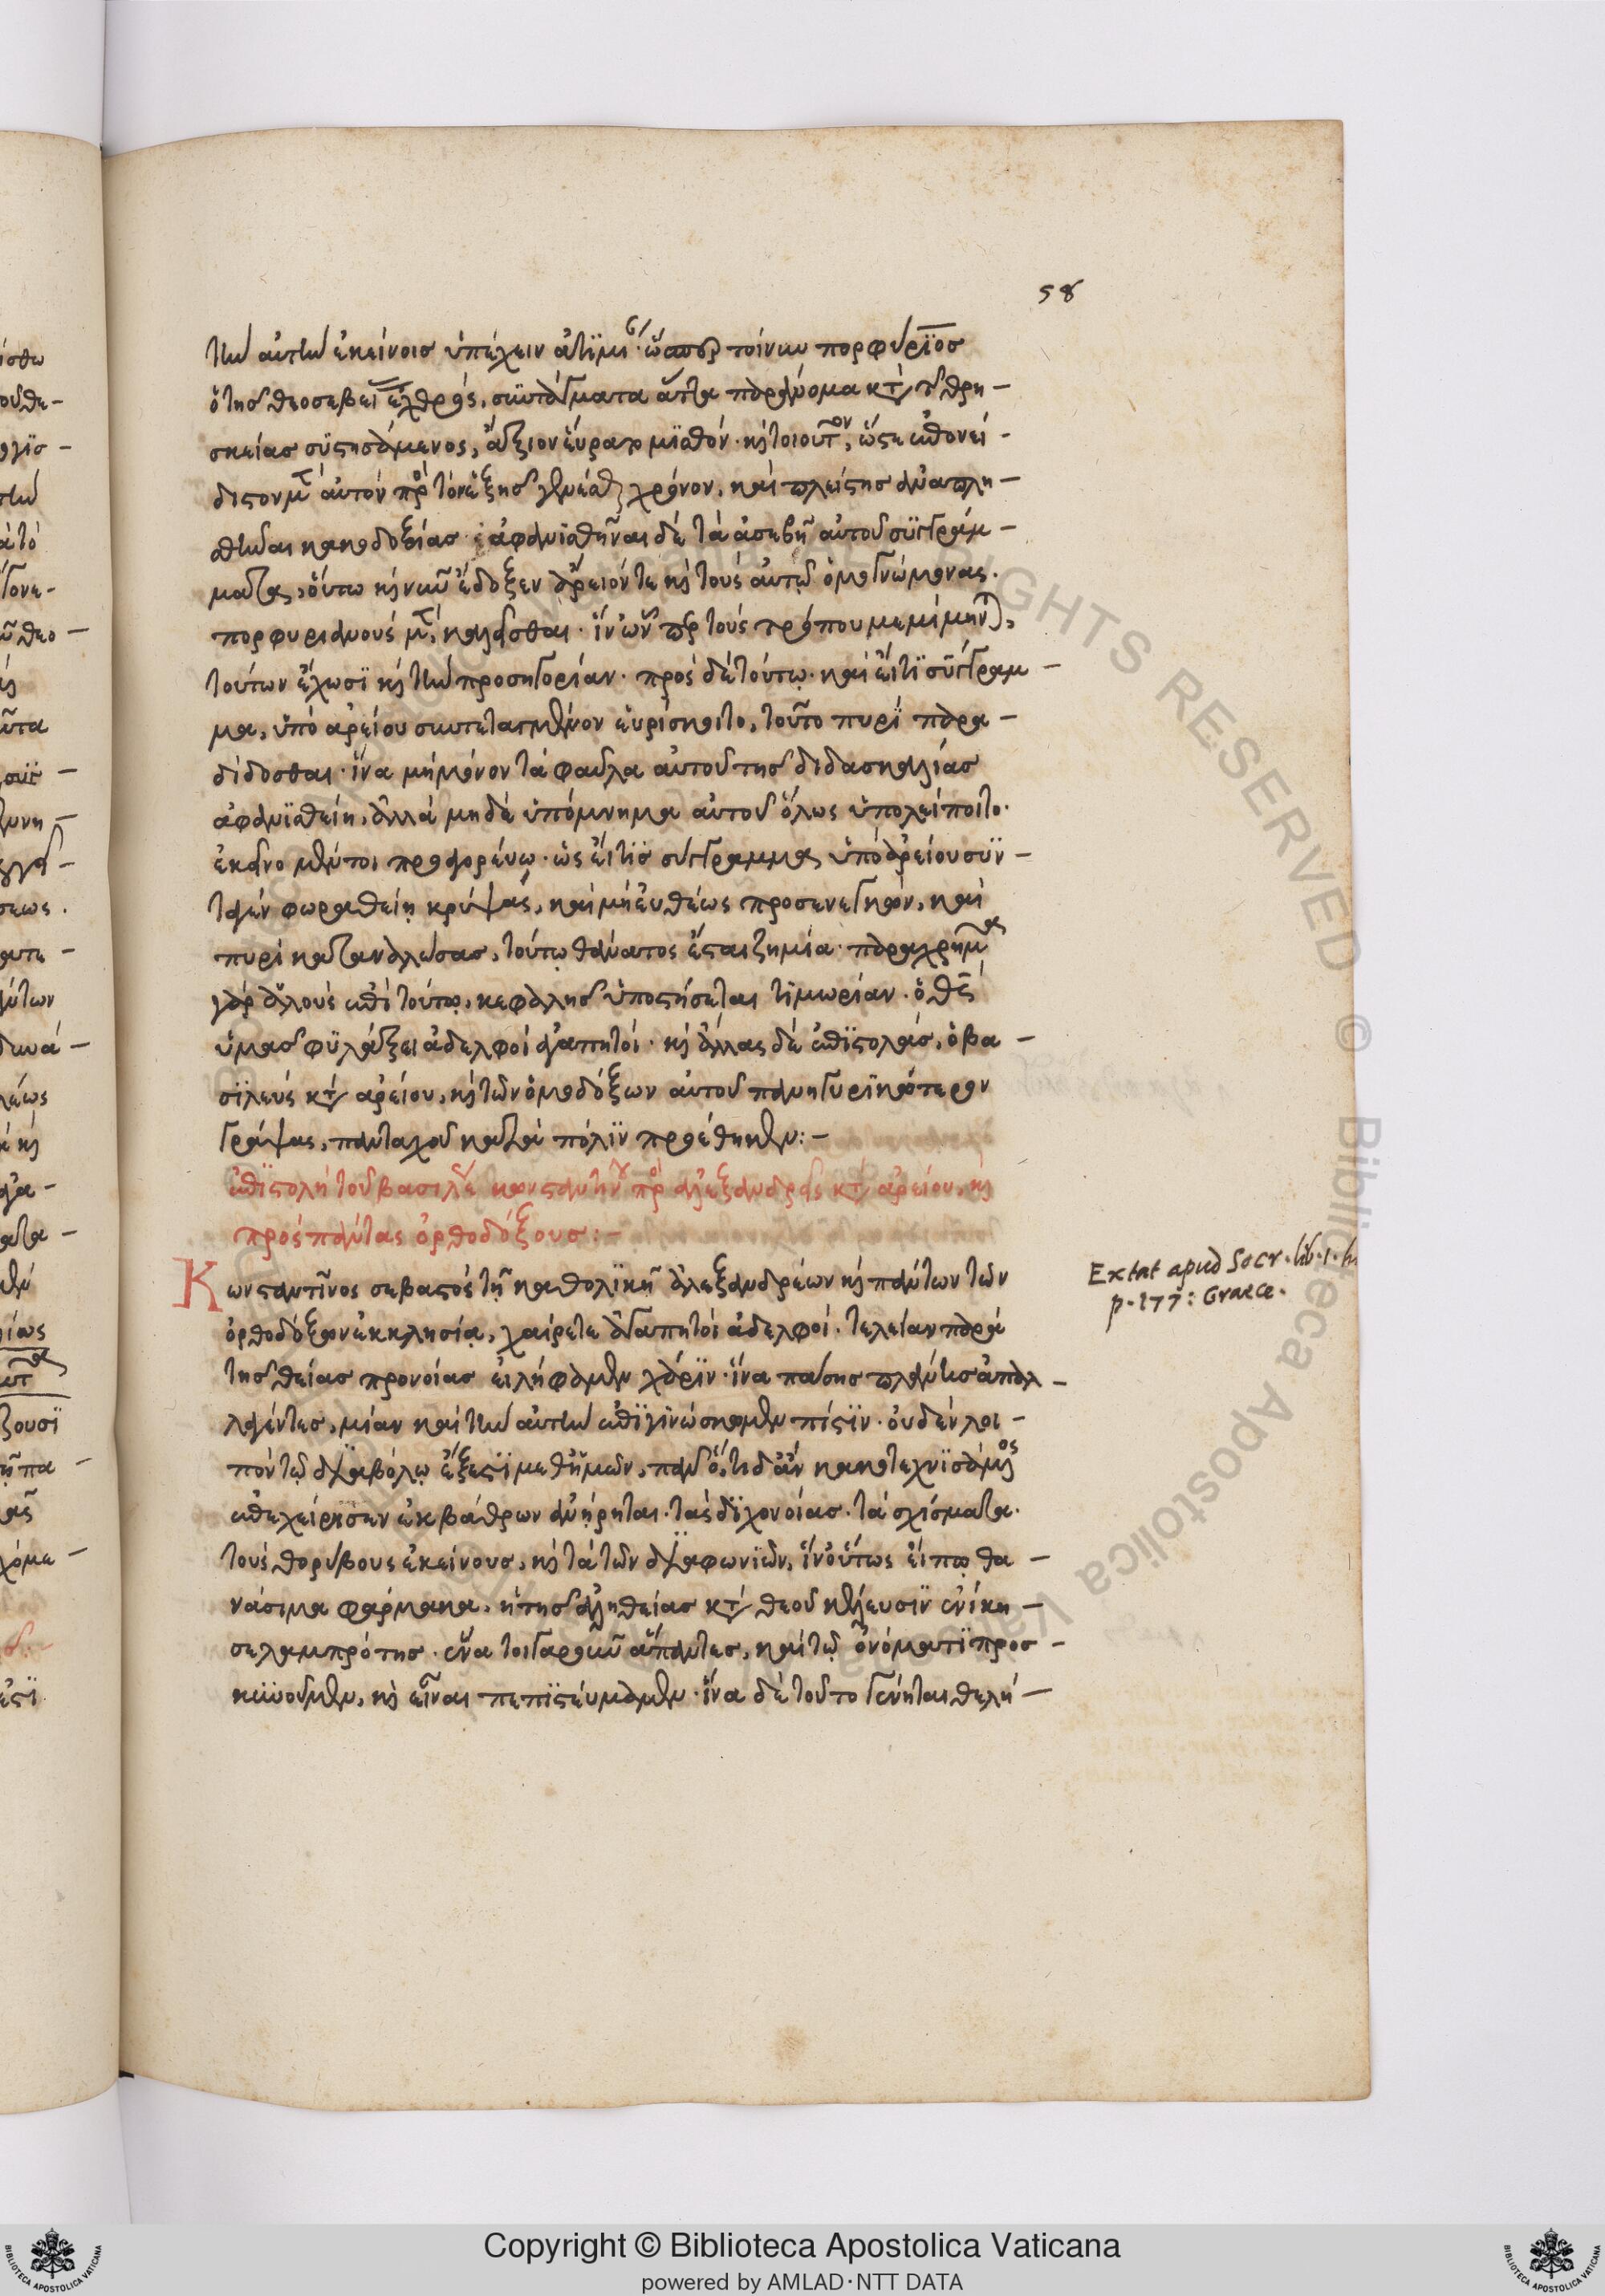 58
τὴν αὐτὴν ἐκείνοις ὑπέχειν ἀτιμίαν· ὥσπερ τοίνυν πορφύριος
ὁ τῆς θεοσεβείας ἐχθρός, συντάγματα ἄττα παράνομα κατὰ τῆς θρη-
σκείας συστησάμενος, ἄξιον εὕρατο μισθόν· καὶ τοιοῦτον, ὥστε ἐπονεί-
διστον μὲν αὐτόν πρὸς τὸν ἑξῆς γενέσθαι χρόνον, καὶ πλείστης ἀναπλη-
σθῆναι κακοδοξίας· ἀφανισθῆναι δὲ τὰ ἀσεβῆ αὐτοῦ συγγράμ-
ματα, οὕτω καὶ νῦν ἔδοξεν ἄρειόν τε καὶ τοὺς αὐτῷ ὁμογνώμονας.
πορφυριανούς μὲν, καλεῖσθαι· ἵν' ὧν περ τοὺς τρόπου μεμίμηνται,
τούτων ἔχωσι καὶ τὴν προσηγορίαν· πρὸς δὲ τούτῳ· καὶ εἴ τι σύγγραμ
μα, ὑπὸ αρείου συντεταγμένον εὑρίσκοιτο, τοῦτο πυρὶ παρα-
δίδοσθαι· ἵνα μὴ μόνον τὰ φαῦλα αὐτοῦ τῆς διδασκαλίας
ἀφανισθείη, ἀλλὰ μηδὲ ὑπόμνημα αὐτοῦ ὅλως ὑπολείποιτο.
ἐκεῖνο μέντοι προαγορεύω· ὡς εἴ τις σύγγραμμα ὑπὸ ἀρείου συν-
ταγέν φωραθείη κρύψας, καὶ μὴ εὐθέως προσενεγκών, καὶ
πυρὶ καταναλώσας, τούτῳ θάνατος ἔσται ζημία· παραχρῆμα
γὰρ ἁλοὺς ἐπὶ τούτῳ, κεφαλῆς ὑποστήσεται τιμωρίαν. ὁ θεὸς
ὑμᾶς φυλάξει ἀδελφοί ἀγαπητοί· καὶ ἄλλας δὲ ἐπιστολάς, ὁ βα-
σιλεύς κατὰ αρείου, καὶ τῶν ὁμοδόξων αὐτοῦ πανηγυρικώτερον
γράψας, πανταχοῦ κατὰ πόλιν προέθηκεν:-
ἐπιστολὴ τοῦ βασιλέως κωνσταντίνου πρὸς ἀλεξανδρεῖς κατὰ ἀρείου, καὶ
πρὸς πάντας ὀρθοδόξους:-
Κωνσταντῖνος σεβαστὸς τῇ καθολικῇ ἀλεξανδρέων καὶ πάντων τῶν
ὀρθοδόξων ἐκκλησίᾳ, χαίρετε ἀγαπητοὶ ἀδελφοί. τελείαν παρὰ
τῆς θείας προνοίας εἰλήφαμεν χάριν· ἵνα πάσης πλάνης ἀπαλ-
λαγέντες, μίαν καὶ τὴν αὐτὴν ἐπιγινώσκωμεν πίστιν· οὐδὲν λοι-
πὸν τῷ διαβόλῳ ἔξεστι μεθ' ἡμῶν, πᾶν ὅ,τι δ' ἂν κακοτεχνισάμενος
ἐπεχείρησεν ἐκ βάθρων ἀνῄρηται· τὰς διχονοίας· τὰ σχίσματα·
τοὺς θορύβους ἐκείνους, καὶ τὰ τῶν διαφωνιῶν, ἵν' οὕτως εἴπω θα-
νάσιμα φάρμακα, ἡ τῆς ἀληθείας κατὰ θεοῦ κέλευσιν ἐνίκη-
σε λαμπρότης· ἕνα τοιγαροῦν ἅπαντες, καὶ τῷ ὀνόματι προσ-
κυνοῦμεν, καὶ εἶναι πεπιστεύκαμεν· ἵνα δὲ τοῦτο γένηται θελή-
Extat apud Socr. lib. 1. h
p. 177: Graece.
Copyright © Biblioteca Apostolica Vaticana
powered by AMLAD·NTT DATA